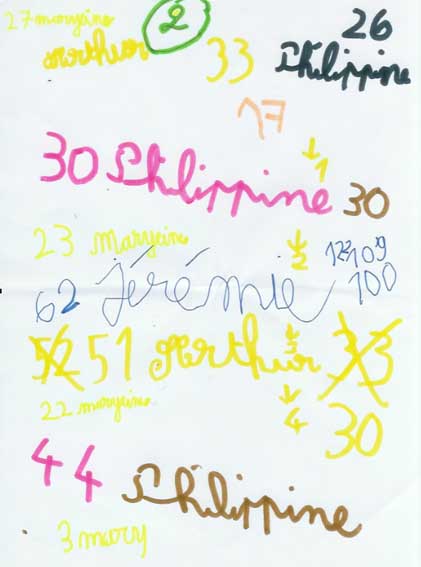 27 maryeine 2 26
Arthur 33 Philippine
17
30 Philippine ↓1 30
23 Maryeine ↓2 123 109
62 Jérémie 100
52 51 Arthur ↓3 33
22 maryeine ↓4 30
44 Philippine
3 mary